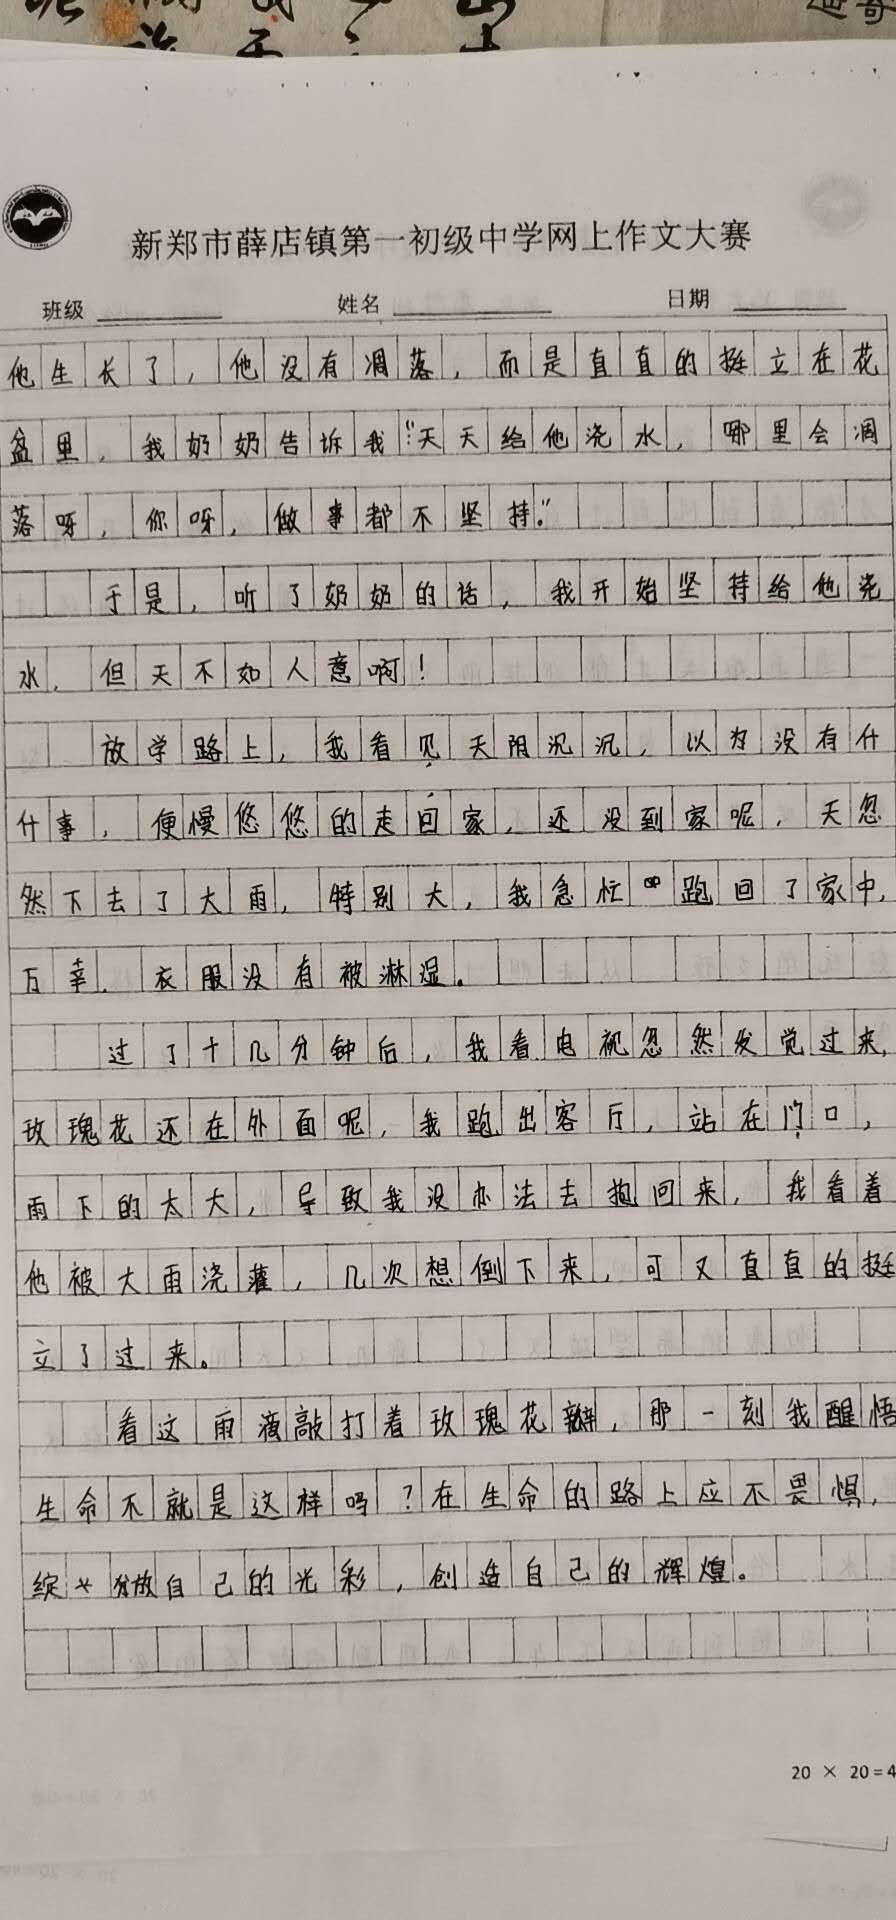 新郑市薛店镇第一初级中学网上作文大赛
班级 姓名 日期
他生长了，他没有凋落，而是直直的挺立在花
盆里，我奶奶告诉我：“天天给他浇水，哪里会凋
落呀，你呀，做事都不坚持。”
于是，听了奶奶的话，我开始坚持给他浇
水，但天不如人意啊！
放学路上，我看见天阴沉沉，以为没有什
什事，便慢悠悠的走回家，还没到家呢，天忽
然下去了大雨，特别大，我急忙跑回了家中，
万幸，衣服没有被淋湿。
过了十几分钟后，我看电视忽然发觉过来，
玫瑰花还在外面呢，我跑出客厅，站在门口，
雨下的太大，导致我没办法去抱回来，我看着
他被大雨浇灌，几次想倒下来，可又直直的挺
立了过来。
看这雨滴敲打着玫瑰花瓣，那一刻我醒悟
生命不就是这样吗？在生命的路上应不畏惧，
绽放自己的光彩，创造自己的辉煌。
20 × 20=4